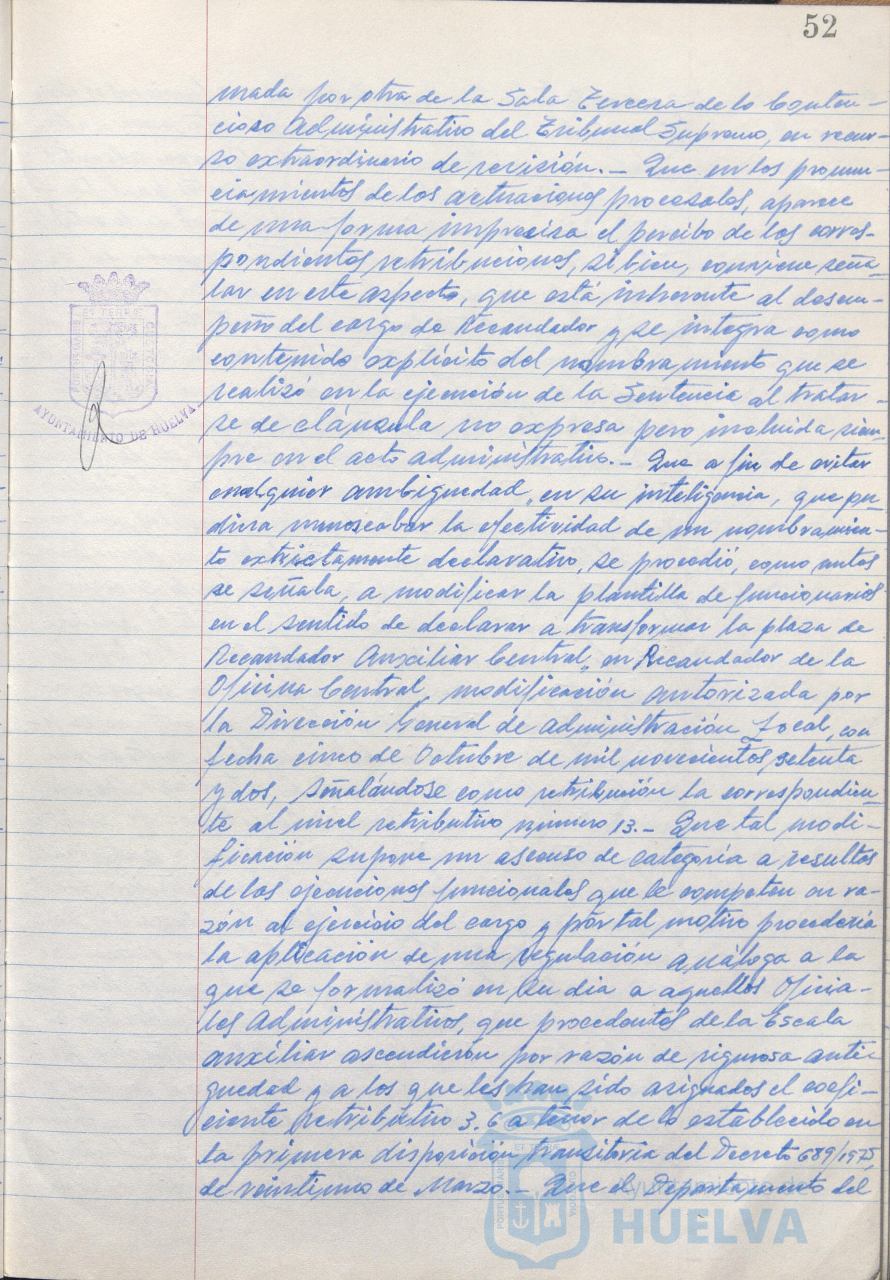 52
mada por otra de la Sala Tercera de lo Conten-
cioso Administrativo del Tribunal Supremo, en recur-
so extraordinario de revisión.- Que en los pronun-
ciamientos de las actuaciones procesales, aparece
de una forma imprecisa el percibo de las corres-
pondientes retribuciones, si bien, conviene seña-
lar en este aspecto, que está inherente al desem-
peño del cargo de Recaudador y se integra como
contenido explícito del nombramiento que se
realizó en la ejecución de la Sentencia al tratar-
se de cláusula no expresa pero incluida siem-
pre en el acto administrativo.- Que a fin de evitar
cualquier ambiguedad, en su inteligencia, que pu-
diera menoscabar la efectividad de un nombramien-
to extrictamente declarativo, se procedió, como antes
se señala, a modificar la plantilla de funcionarios
en el sentido de declarar a transformar la plaza de
Recaudador Auxiliar Central, en Recaudador de la
Oficina Central, modificación autorizada por
la Dirección General de Administración Local, con
fecha cinco de Octubre de mil novecientos setenta
y dos, señalándose como retribución la correspondien-
te al nivel retributivo número 13.- Que tal modi-
ficación supone un ascenso de categoría a resultas
de las ejecuciones funcionales que le competen en ra-
zón al ejercicio del cargo y por tal motivo procedería
la aplicación de una regulación análoga a la
que se formalizó en su dia a aquellos Oficia-
les Administrativos, que procedentes de la Escala
auxiliar ascendieron por razón de rigurosa anti-
guedad y a los que les han sido asignados el coefi-
ciente retributivo 3,6 a tenor de lo establecido en
la primera disposición transitoria del Decreto 689/1975,
de veintiuno de Marzo.- Que el Departamento del
AYUNTAMIENTO DE HUELVA
Ayuntamiento de
HUELVA